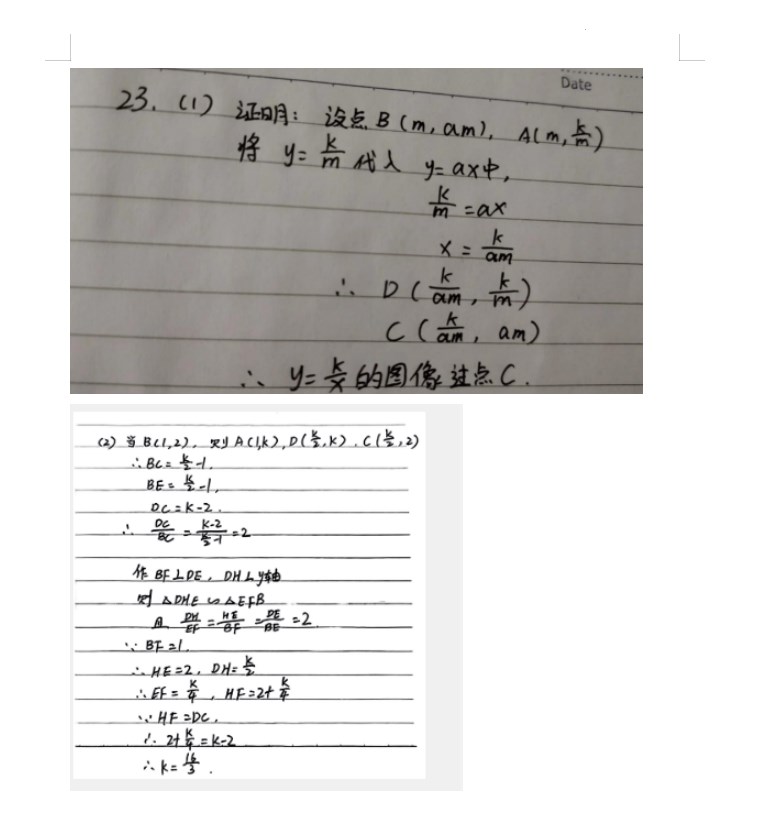 Date
23. (1) 证明: 设点 B (m, am), A(m, k/m)
将 y= k/m 代入 y=ax中,
k/m =ax
x = k/am
∴ D ( k/am , k/m )
C ( k/am , am)
∴ y= k/x 的图像过点 C.
(2) 当 B(1,2), 则 A(1,k), D( k/2 ,k), C( k/2 ,2)
∴BC= k/2 -1.
BE= k/2 -1,
DC=k-2.
∴ DC/BC = k-2 / k/2 -1 =2
作 BF⊥DE, DH⊥y轴
则 △DHE ∽ △EFB
且 DH/EF = HE/BF = DE/BE =2
∵ BF=1.
∴ HE=2, DH= k/2
∴ EF= k/4 , HF=2+ k/4
∵ HF=DC,
∴ 2+ k/4 =k-2
∴ k= 16/3 .